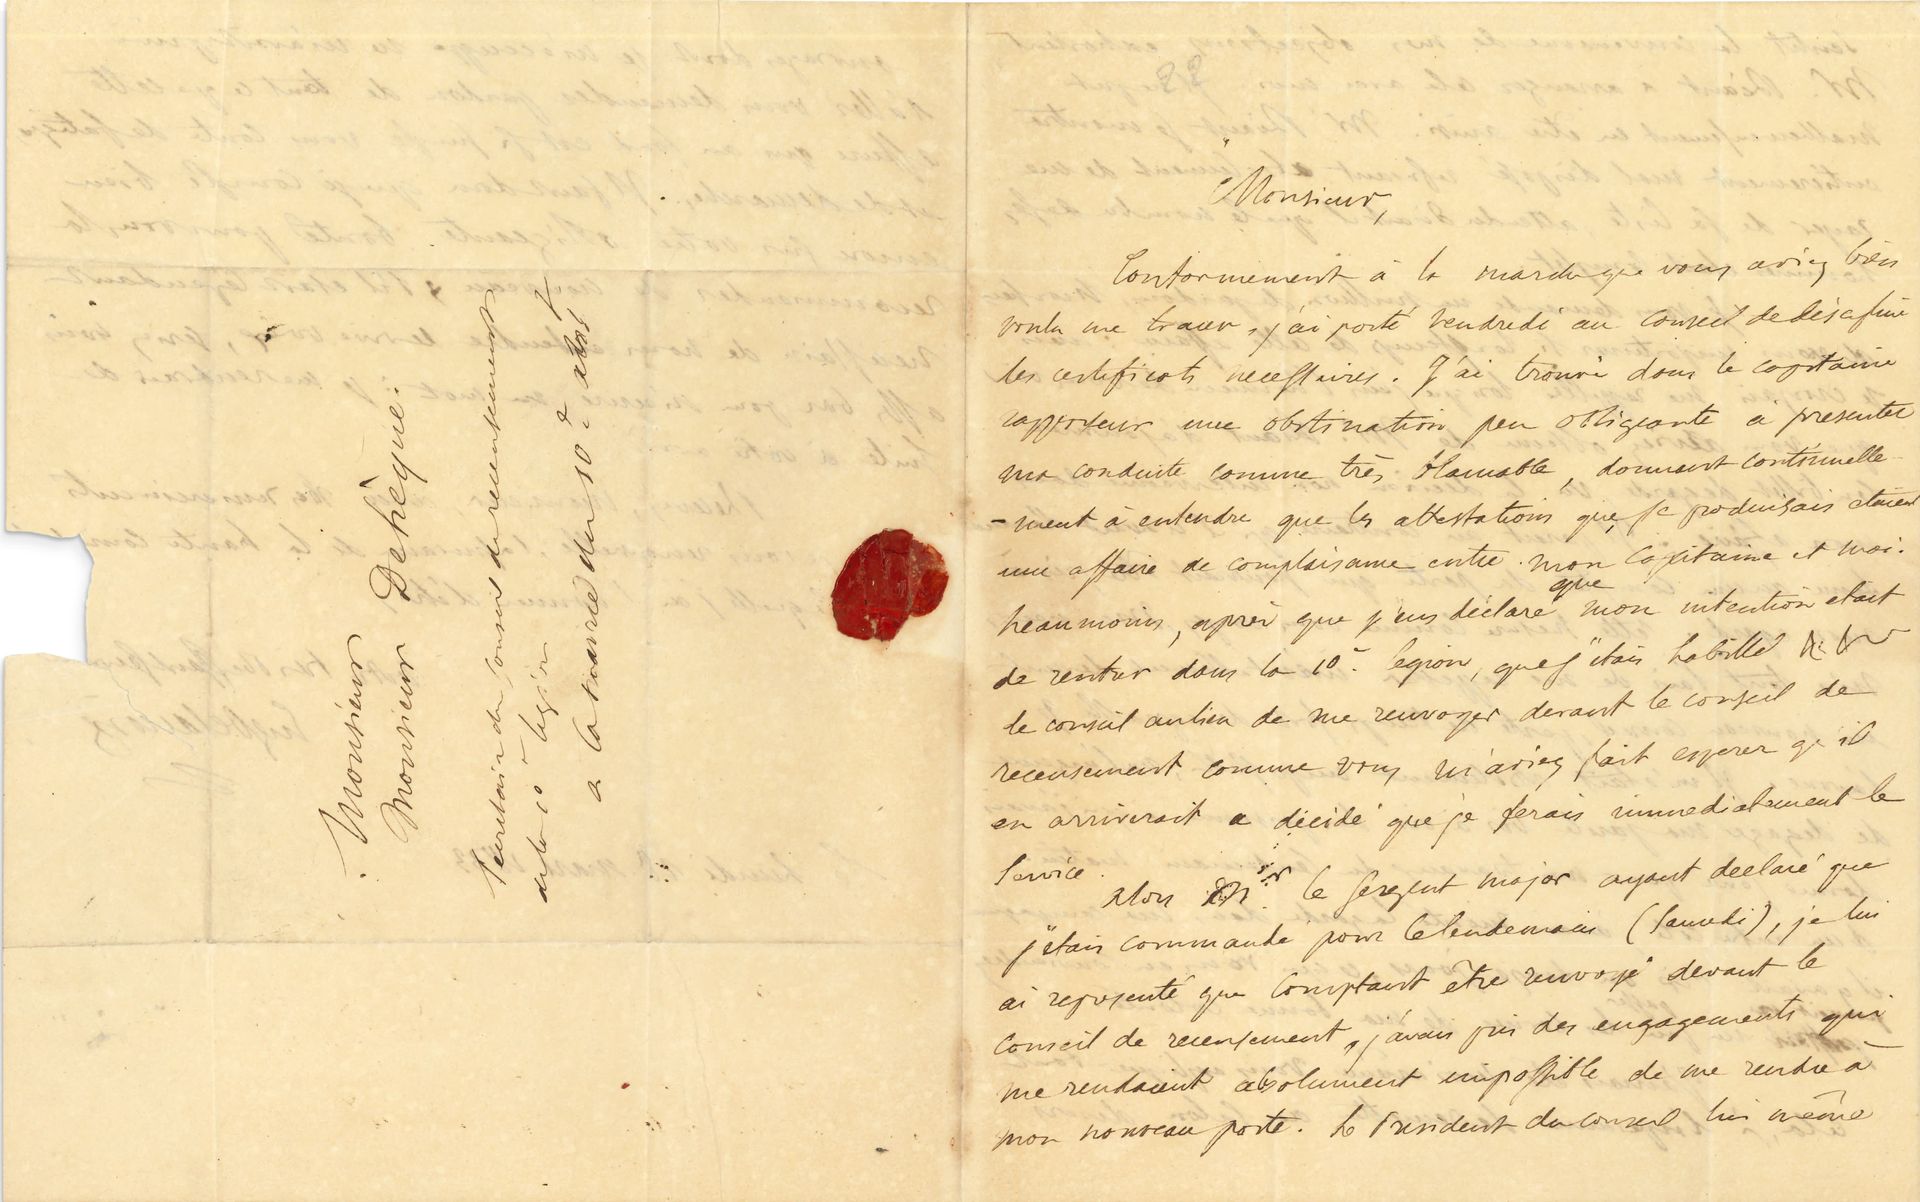 Monsieur
Monsieur Dehèque.
Secrétaire du Conseil de recensement
de la 10e légion
a la mairie du 10e arrt
Monsieur,
Conformement à la marche que vous aviez bien
voulu me tracer, j'ai porté vendredi au conseil de discipline
les certificats necessaires. J'ai trouvé dans le capitaine
rapporteur une obstination peu obligeante à presenter
ma conduite comme très blamable, donnant continuelle-
-ment à entendre que les attestations que je produisais etaient
une affaire de complaisance entre mon capitaine et moi.
neanmoins, après que j'eus déclaré que mon intention etait
de rentrer dans la 10e legion, que j'étais habillé
le conseil aulieu de me renvoyer devant le conseil de
recensement comme vous m'aviez fait esperer qu'il
en arriverait a décidé que je ferais immediatement le
Service.
Alors le sergent major ayant declaré que
j'étais commandé pour le lendemain (Samedi), je lui
ai representé que comptant être renvoyé devant le
conseil de recensement, j'avais pris des engagements qui
me rendaient absolument impossible de me rendre à
mon nouveau poste. Le President du conseil lui même